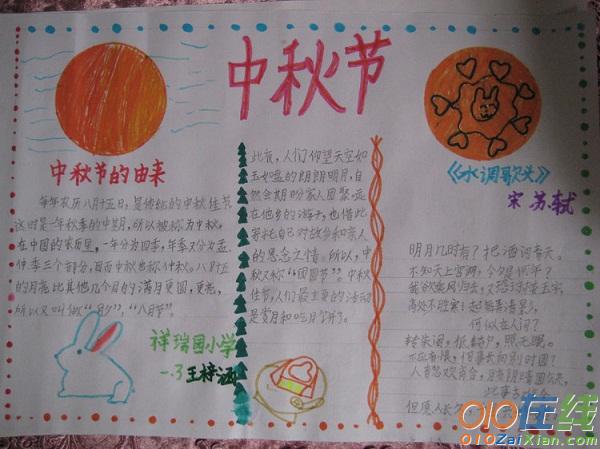 中秋节
中秋节的由来
每年农历八月十五日，是传统的中秋佳节
这时是一年秋季的中期，所以被称为中秋。
在中国的农历里，一年分为四季，每季又分为孟
仲季三个部分，因而中秋也称仲秋。八月十五
的月亮比其他几个月的满月更圆，更亮，
所以又叫做“月夕”，“八月节”。
祥瑞园小学
一.3王梓涵
此夜，人们仰望天空如
玉如盘的朗朗明月，自
然会期盼家人团聚。远
在他乡的游子，也借此
寄托自己对故乡和亲人
的思念之情。所以，中
秋又称“团圆节”。中秋
佳节，人们最主要的活动
是赏月和吃月饼了。
《水调歌头》
宋 苏轼
明月几时有？把酒问青天。
不知天上宫阙，今夕是何年？
我欲乘风归去，又恐琼楼玉宇，
高处不胜寒！起舞弄清影，
何似在人间？
转朱阁，低绮户，照无眠。
不应有恨，何事长向别时圆？
人有悲欢离合，月有阴晴圆缺，
此事古
但愿人长久，
010在线
010ZaiXian.com